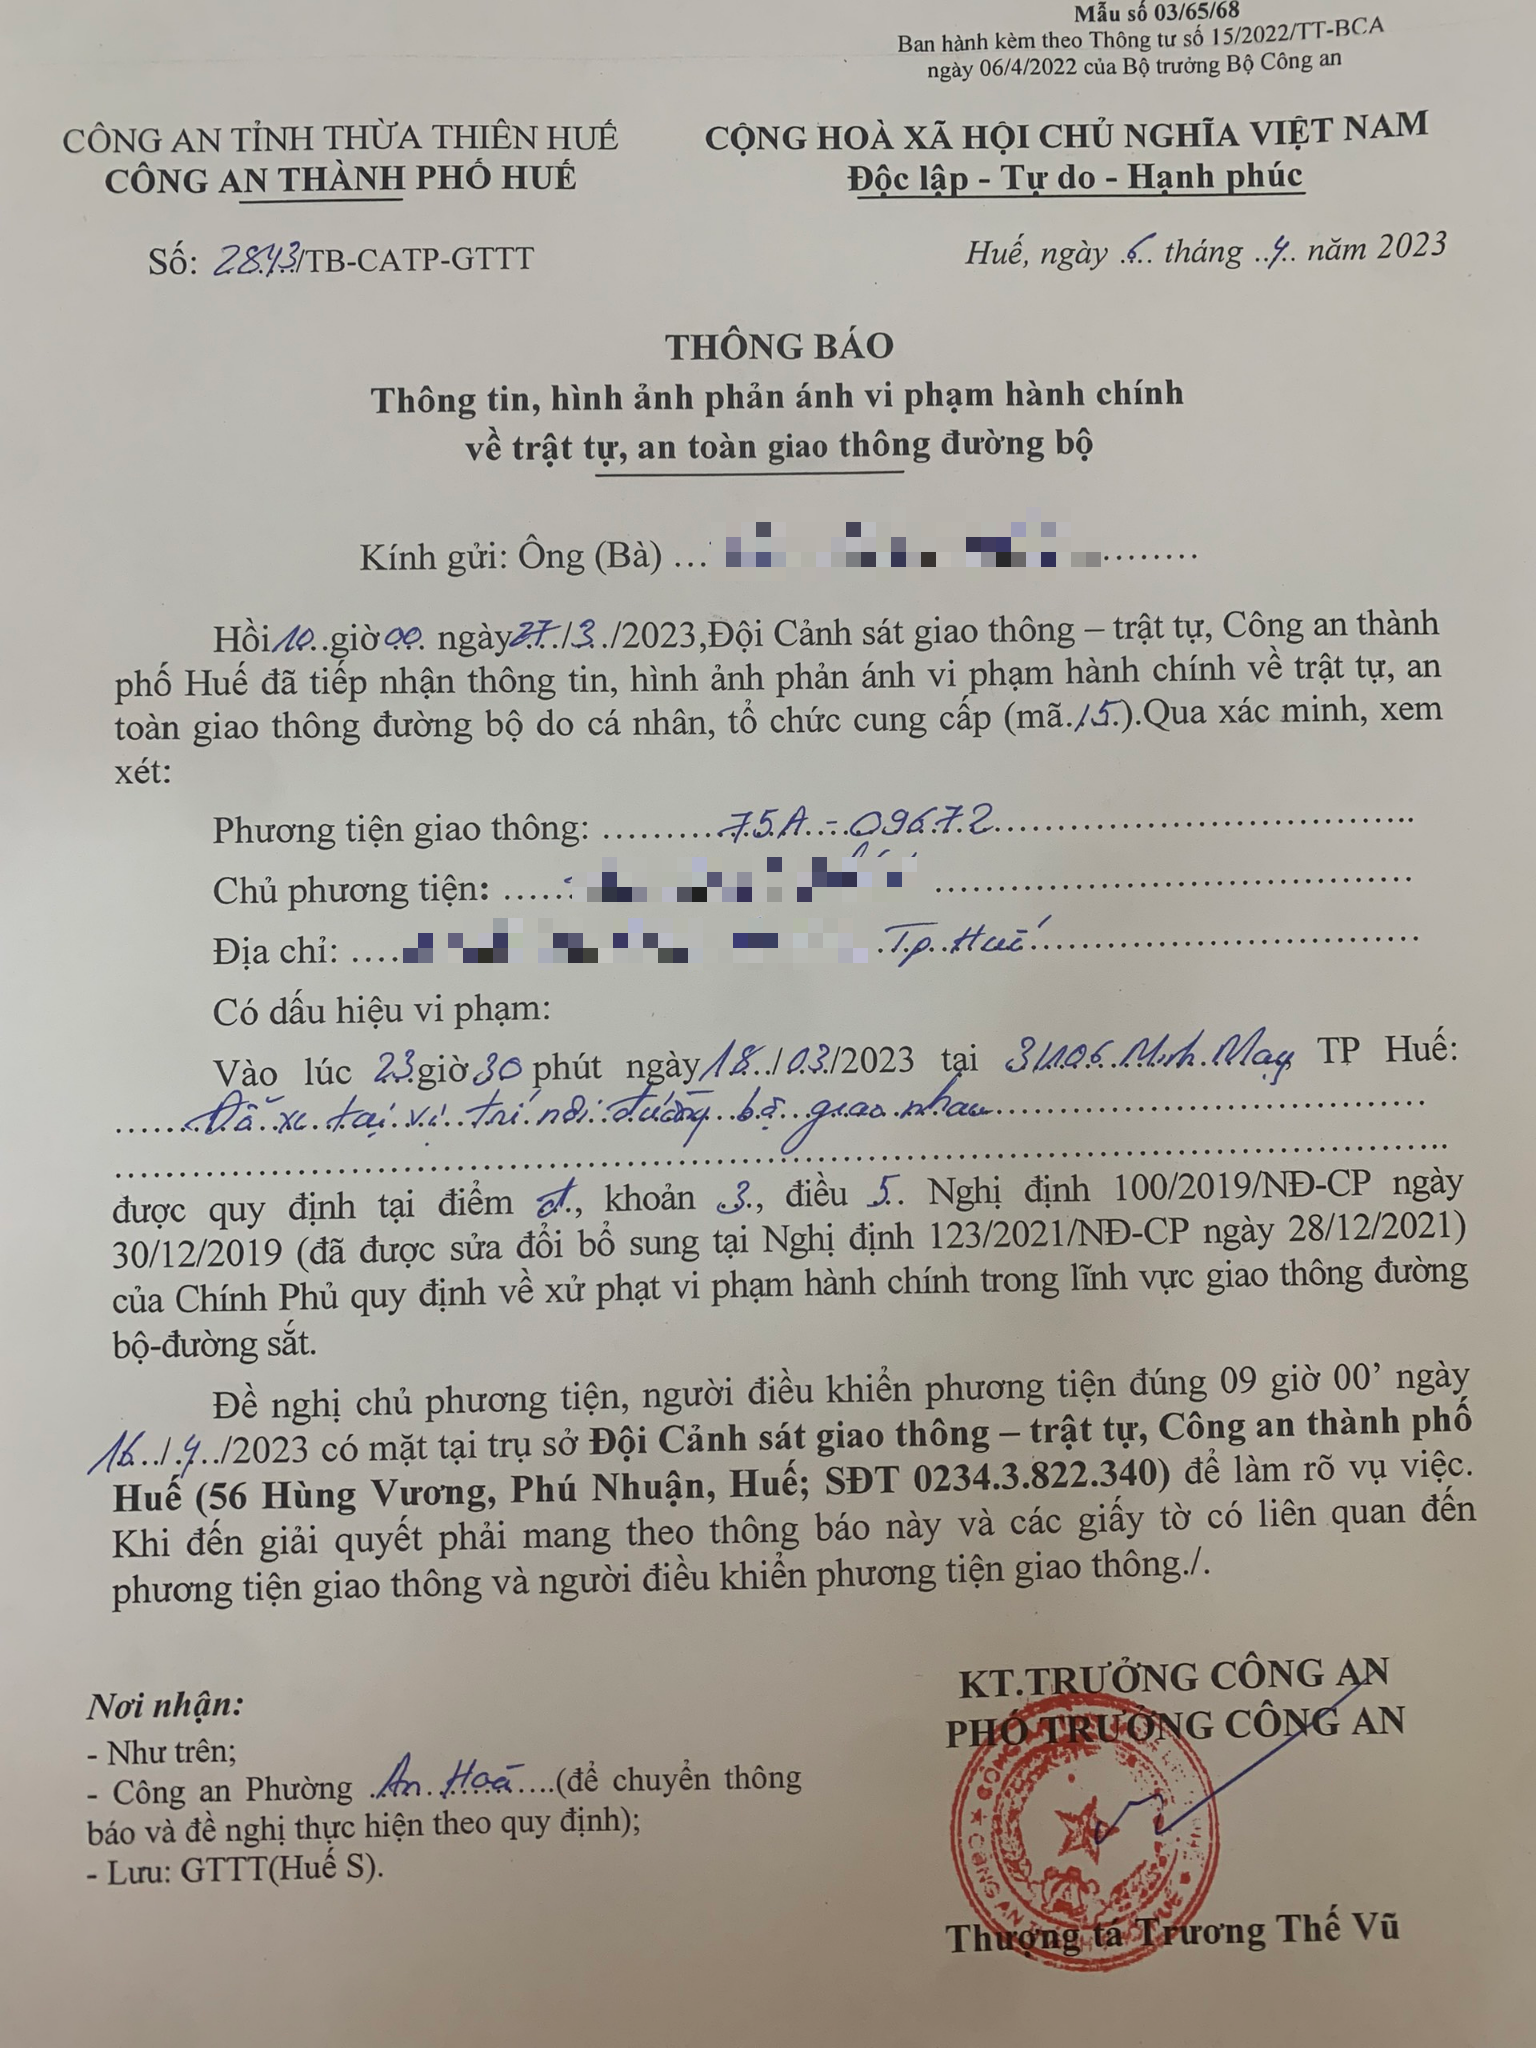 Mẫu số 03/65/68
Ban hành kèm theo Thông tư số 15/2022/TT-BCA
ngày 06/4/2022 của Bộ trưởng Bộ Công an
CÔNG AN TỈNH THỪA THIÊN HUẾ
CÔNG AN THÀNH PHỐ HUẾ
CỘNG HOÀ XÃ HỘI CHỦ NGHĨA VIỆT NAM
Độc lập - Tự do - Hạnh phúc
Số: 2843/TB-CATP-GTTT
Huế, ngày 6 tháng 4 năm 2023
THÔNG BÁO
Thông tin, hình ảnh phản ánh vi phạm hành chính
về trật tự, an toàn giao thông đường bộ
Kính gửi: Ông (Bà)
Hồi 10 giờ 00 ngày 27/3/2023,Đội Cảnh sát giao thông – trật tự, Công an thành
phố Huế đã tiếp nhận thông tin, hình ảnh phản ánh vi phạm hành chính về trật tự, an
toàn giao thông đường bộ do cá nhân, tổ chức cung cấp (mã 15).Qua xác minh, xem
xét:
Phương tiện giao thông: 75A - 09672
Chủ phương tiện:
Địa chỉ: Tp Huế
Có dấu hiệu vi phạm:
Vào lúc 23 giờ 30 phút ngày 18/03/2023 tại 3/106 Minh Mạng TP Huế:
Đỗ xe tại vị trí nơi đường bộ giao nhau
được quy định tại điểm đ, khoản 3, điều 5 Nghị định 100/2019/NĐ-CP ngày
30/12/2019 (đã được sửa đổi bổ sung tại Nghị định 123/2021/NĐ-CP ngày 28/12/2021)
của Chính Phủ quy định về xử phạt vi phạm hành chính trong lĩnh vực giao thông đường
bộ-đường sắt.
Đề nghị chủ phương tiện, người điều khiển phương tiện đúng 09 giờ 00’ ngày
16/4/2023 có mặt tại trụ sở Đội Cảnh sát giao thông – trật tự, Công an thành phố
Huế (56 Hùng Vương, Phú Nhuận, Huế; SĐT 0234.3.822.340) để làm rõ vụ việc.
Khi đến giải quyết phải mang theo thông báo này và các giấy tờ có liên quan đến
phương tiện giao thông và người điều khiển phương tiện giao thông./.
Nơi nhận:
- Như trên;
- Công an Phường An Hoà (để chuyển thông
báo và đề nghị thực hiện theo quy định);
- Lưu: GTTT(Huế S).
KT.TRƯỞNG CÔNG AN
PHÓ TRƯỞNG CÔNG AN
Thượng tá Trương Thế Vũ